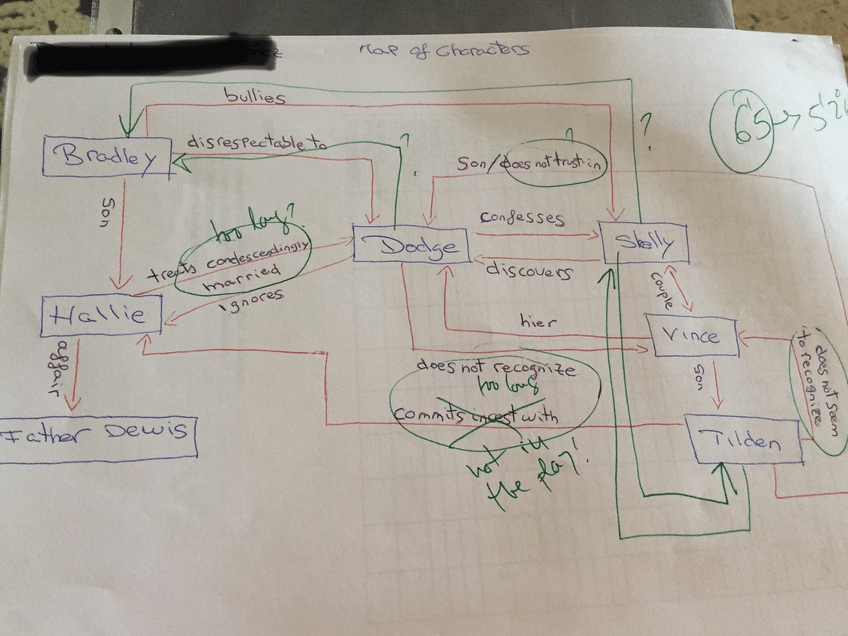 Map of Characters
bullies
65 → 5
Bradley
disrespectable to
?
?
?
Son/does not trust in
Son
too long?
treats condescendingly
married
ignores
Dodge
confesses
discovers
Shelly
couple
Hallie
hier
Vince
does not seem
to recognize
does not recognize
too long
commits incest with
not in
the play!
son
affair
Father Dewis
Tilden